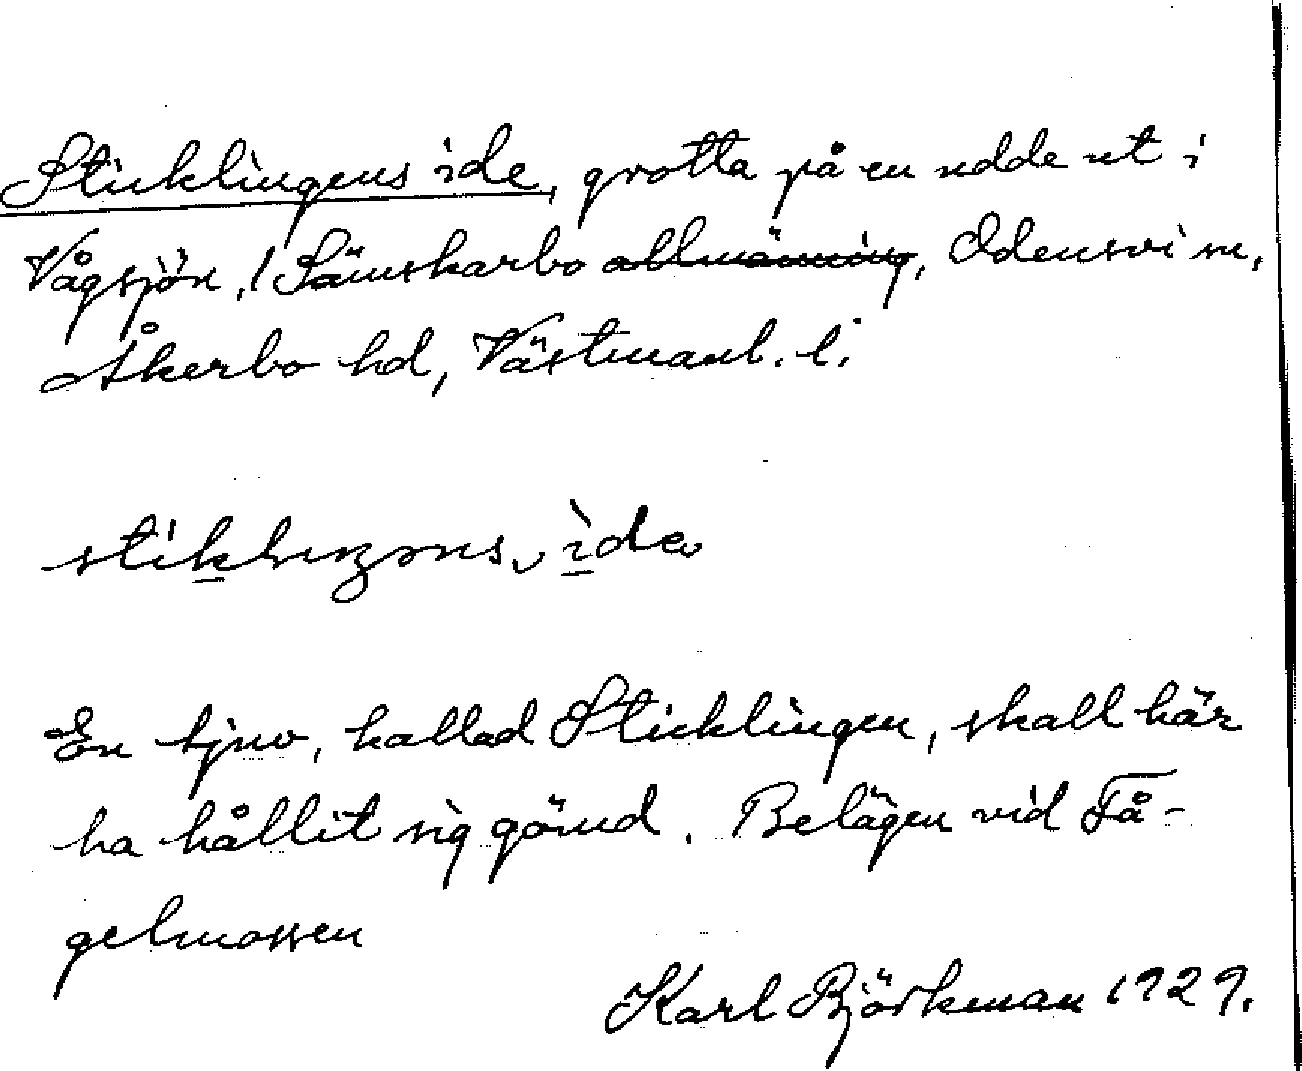 Sticklingens ide, grotta på en udde ut i
Vågsjön, / Sämskarbo allmänning, Odensvi sn,
Åkerbo hd, Västmanl. l.
En tjuv, kallad Sticklingen, skall här
ha hållit sig gömd. Belägen vid Få-
gelmossen
Karl Björkman 1929.